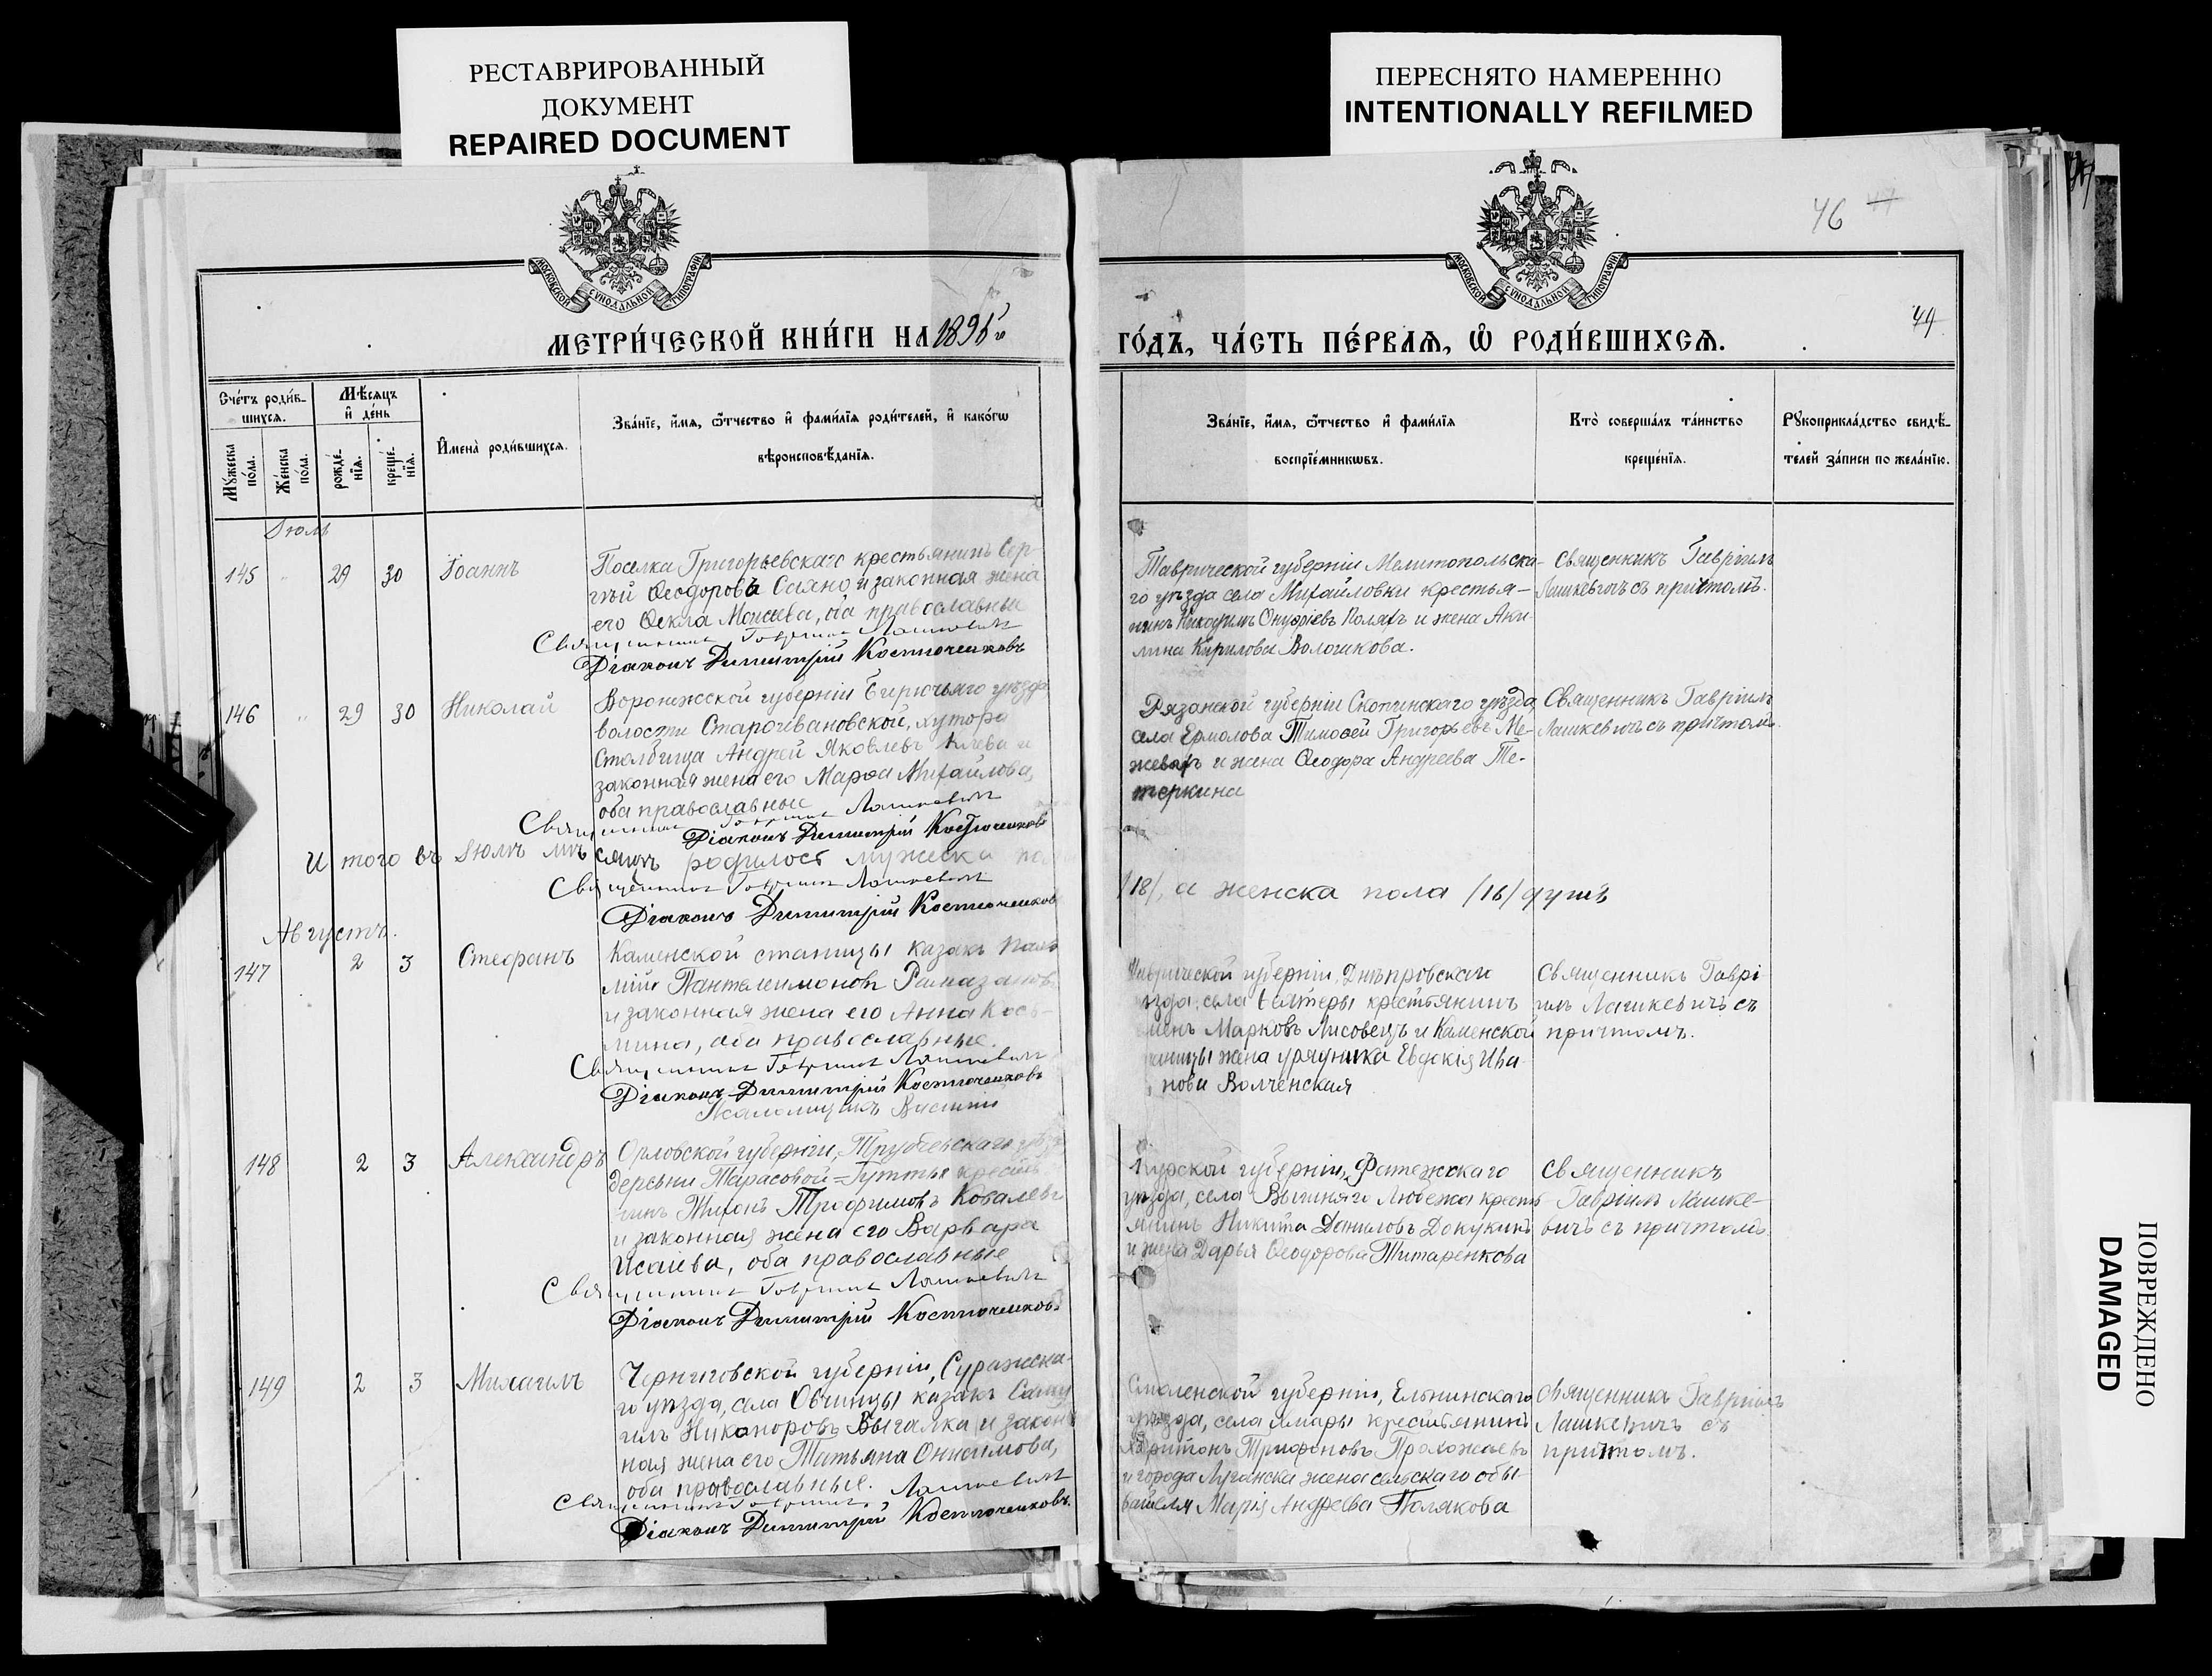 РЕСТАВРИРОВАННЫЙ
ДОКУМЕНТ
REPAIRED DOCUMENT
ПЕРЕСНЯТО НАМЕРЕННО
INTENTIONALLY REFILMED
46
49
МОСКОВСКОЙ СУНОДАЛЬНОЙ ТИПОГРАФІИ
МОСКОВСКОЙ СУНОДАЛЬНОЙ ТИПОГРАФІИ
МЕТРИ́ЧЕСКОЙ КНИ́ГИ НА 1895й
ГО́ДЪ, ЧА́СТЬ ПЕ́РВАЯ, Ѿ РОДИ́ВШИХСЯ.
Сче́тъ роди́в-
шихся.
Мꙋ́жеска по́ла.
Же́нска по́ла.
Мѣ́сяцъ и҆ де́нь
рожде́-нїѧ.
креще́-нїѧ.
И҆мена̀ роди́вшихсѧ.
Зва́нїе, и҆́мѧ, ѻ҆́тчество и҆ фами́лїѧ роди́телей, и҆ како́гѡ
вѣроисповѣ́данїѧ.
Зва́нїе, и҆́мѧ, ѻ҆́тчество и҆ фами́лїѧ
воспрїе́мникѡвъ.
Кто̀ соверша́лъ та́инство
креще́нїѧ.
Рꙋкоприкла́дство свидѣ́-
телей за́писи по жела́нїю.
Іюль
145 " 29 30 Іоаннъ
Поселка Григорьевскаго крестьянинъ Сер-
гѣй Ѳеодоровъ и законная жена
его Ѳекла Моисеева, оба православные
Священникъ Гавріилъ Лашкевичъ
Діаконъ Димитрій Костюченковъ
Таврической губерніи Мелитопольска-
го уѣзда села Михайловки крестья-
нинъ Никодимъ Онуфріевъ Поляхъ и жена Аки-
лина Кирилова Волошкова.
Священникъ Гавріилъ
Лашкевичъ съ причтомъ.
146 " 29 30 Николай
Воронежской губерніи Бирючьяго уѣзда
волости Староивановской, хутора
Столбища Андрей Яковлевъ и
законная жена его Марѳа Михайлова,
оба православные
Священникъ Гавріилъ Лашкевичъ
Діаконъ Димитрій Костюченковъ
Рязанской губерніи Скопинскаго уѣзда
села Ермолова Тимоѳей Григорьевъ Ме-
жевахъ и жена Ѳеодора Андреева Те-
теркина
Священникъ Гавріилъ
Лашкевичъ съ причтомъ.
И того въ Іюлѣ мѣсяцѣ родилось мужеска по
/18/, а женска пола /16/ душъ
Священникъ Гавріилъ Лашкевичъ
Діаконъ Димитрій Костюченковъ
Августъ.
147 2 3 Стефанъ
Каменской станицы казакъ
Пантелеимоновъ Рамазановъ
и законная жена его Анна Кось-
мина, оба православные.
Священникъ Гавріилъ Лашкевичъ
Діаконъ Димитрій Костюченковъ
Псаломщикъ
Таврической губерніи, Днѣпровскаго
уѣзда, села крестьянинъ
Марковъ Лисовецъ и Каменской
станицы жена урядника Евдокія Ива-
нова Волченская
Священникъ Гаврі-
илъ Лашкевичъ съ
причтомъ.
148 2 3 Александръ
Орловской губерніи, Трубчевскаго уѣзда
деревни Тарасовой=Гутты крестья
нинъ Тихонъ Трофимовъ Ковалевъ
и законная жена его Варвара
Исаіева, оба православные
Священникъ Гавріилъ Лашкевичъ
Діаконъ Димитрій Костюченковъ
Курской губерніи, Фатежскаго
уѣзда, села Вышняго Любежа кресть
янинъ Никита Даниловъ Докукинъ
и жена Дарья Ѳеодорова Титаренкова
Священникъ
Гавріилъ Лашке-
вичъ съ причтомъ.
149 2 3 Михаилъ
Черниговской губерніи, Суражска-
го уѣзда, села Овчинцы казакъ Саму
илъ Никаноровъ Выгалка и закон
ная жена его Татьяна Онисимова,
оба православные.
Священникъ Гавріилъ Лашкевичъ
Діаконъ Димитрій Костюченковъ
Смоленской губерніи, Ельнинскаго
уѣзда, села крестьянинъ
Харитонъ Трифоновъ Прохожаевъ
и города Луганска жена сельскаго обы-
вателя Марія Андреева Полякова
Священникъ Гавріилъ
Лашкевичъ съ
причтомъ.
ПОВРЕЖДЕНО
DAMAGED